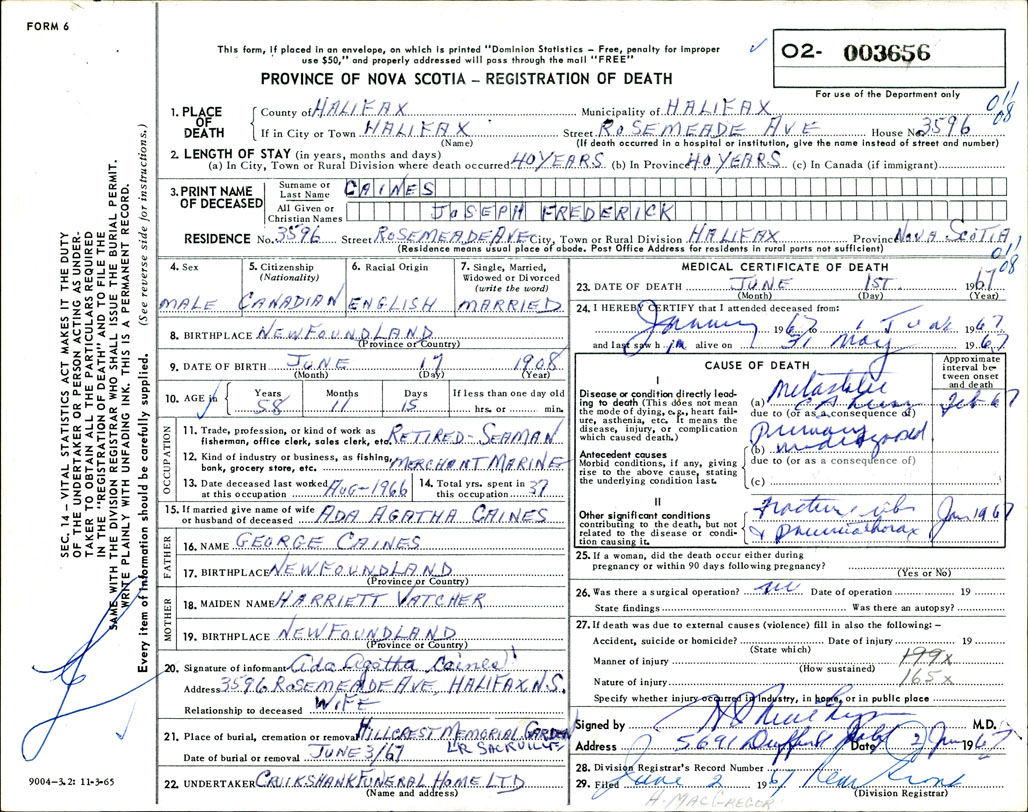 FORM 6
This form, if placed in an envelope, on which is printed "Dominion Statistics – Free, penalty for improper
use $50," and properly addressed will pass through the mail "FREE"
PROVINCE OF NOVA SCOTIA – REGISTRATION OF DEATH
✓ 02- 003656
For use of the Department only
011
08
1. PLACE OF DEATH
County of HALIFAX Municipality of HALIFAX
If in City or Town HALIFAX Street ROSEMEADE AVE House No. 3596
(Name) (If death occurred in a hospital or institution, give the name instead of street and number)
2. LENGTH OF STAY (in years, months and days)
(a) In City, Town or Rural Division where death occurred 40 YEARS (b) In Province 40 YEARS (c) In Canada (if immigrant)
3. PRINT NAME OF DECEASED
Surname or Last Name CAINES
All Given or Christian Names JOSEPH FREDERICK
RESIDENCE No. 3596 Street ROSEMEADE AVE City, Town or Rural Division HALIFAX Province NOVA SCOTIA
(Residence means usual place of abode. Post Office Address for residents in rural parts not sufficient)
011
08
4. Sex
MALE
5. Citizenship
(Nationality)
CANADIAN
6. Racial Origin
ENGLISH
7. Single, Married,
Widowed or Divorced
(write the word)
MARRIED
8. BIRTHPLACE NEWFOUNDLAND
(Province or Country)
9. DATE OF BIRTH JUNE 17 1908
(Month) (Day) (Year)
10. AGE in ✓ Years 58 Months 11 Days 15 If less than one day old
hrs. or min.
OCCUPATION
11. Trade, profession, or kind of work as
fisherman, office clerk, sales clerk, etc. RETIRED - SEAMAN
12. Kind of industry or business, as fishing,
bank, grocery store, etc. MERCHANT MARINE
13. Date deceased last worked
at this occupation AUG-1966
14. Total yrs. spent in
this occupation 37
15. If married give name of wife
or husband of deceased ADA AGATHA CAINES
FATHER
16. NAME GEORGE CAINES
17. BIRTHPLACE NEWFOUNDLAND
(Province or Country)
MOTHER
18. MAIDEN NAME HARRIETT VATCHER
19. BIRTHPLACE NEWFOUNDLAND
(Province or Country)
20. Signature of informant Ada Agatha Caines
Address 3596 ROSEMEADE AVE HALIFAX N.S.
Relationship to deceased WIFE
21. Place of burial, cremation or removal HILLCREST MEMORIAL GARDEN
L'R SACKVILLE
Date of burial or removal JUNE 3/67
22. UNDERTAKER CRUIKSHANK FUNERAL HOME LTD
(Name and address)
MEDICAL CERTIFICATE OF DEATH
23. DATE OF DEATH JUNE 1ST. 1967
(Month) (Day) (Year)
24. I HEREBY CERTIFY that I attended deceased from:
January 1967 to 1 June 1967
and last saw him alive on 31 May 1967
CAUSE OF DEATH
Approximate interval between onset and death
I
Disease or condition directly leading to death (This does not mean the mode of dying, e.g., heart failure, asthenia, etc. It means the disease, injury, or complication which caused death.)
(a) Metastatic
due to (or as a consequence of)
Feb 67
primary
(b) undiagnosed
due to (or as a consequence of)
(c)
Antecedent causes
Morbid conditions, if any, giving rise to the above cause, stating the underlying condition last.
II
Other significant conditions
contributing to the death, but not related to the disease or condition causing it.
Fracture ribs
& pneumothorax
Jan 1967
25. If a woman, did the death occur either during
pregnancy or within 90 days following pregnancy?
(Yes or No)
26. Was there a surgical operation? no Date of operation 19
State findings Was there an autopsy?
27. If death was due to external causes (violence) fill in also the following: –
Accident, suicide or homicide? Date of injury 19
(State which)
Manner of injury 199x
(How sustained)
Nature of injury 165x
Specify whether injury occurred in industry, in home, or in public place
Signed by M.D.
Address 5691 Date 2 Jun 1967
28. Division Registrar's Record Number
29. Filed June 2 1967
(Division Registrar)
H. MACGREGOR
SEC. 14 – VITAL STATISTICS ACT MAKES IT THE DUTY
OF THE UNDERTAKER OR PERSON ACTING AS UNDER-
TAKER TO OBTAIN ALL THE PARTICULARS REQUIRED
IN THE "REGISTRATION OF DEATH" AND TO FILE THE
SAME WITH THE DIVISION REGISTRAR WHO SHALL ISSUE THE BURIAL PERMIT.
WRITE PLAINLY WITH UNFADING INK. THIS IS A PERMANENT RECORD.
Every item of information should be carefully supplied. (See reverse side for instructions.)
9004-3.2: 11-3-65